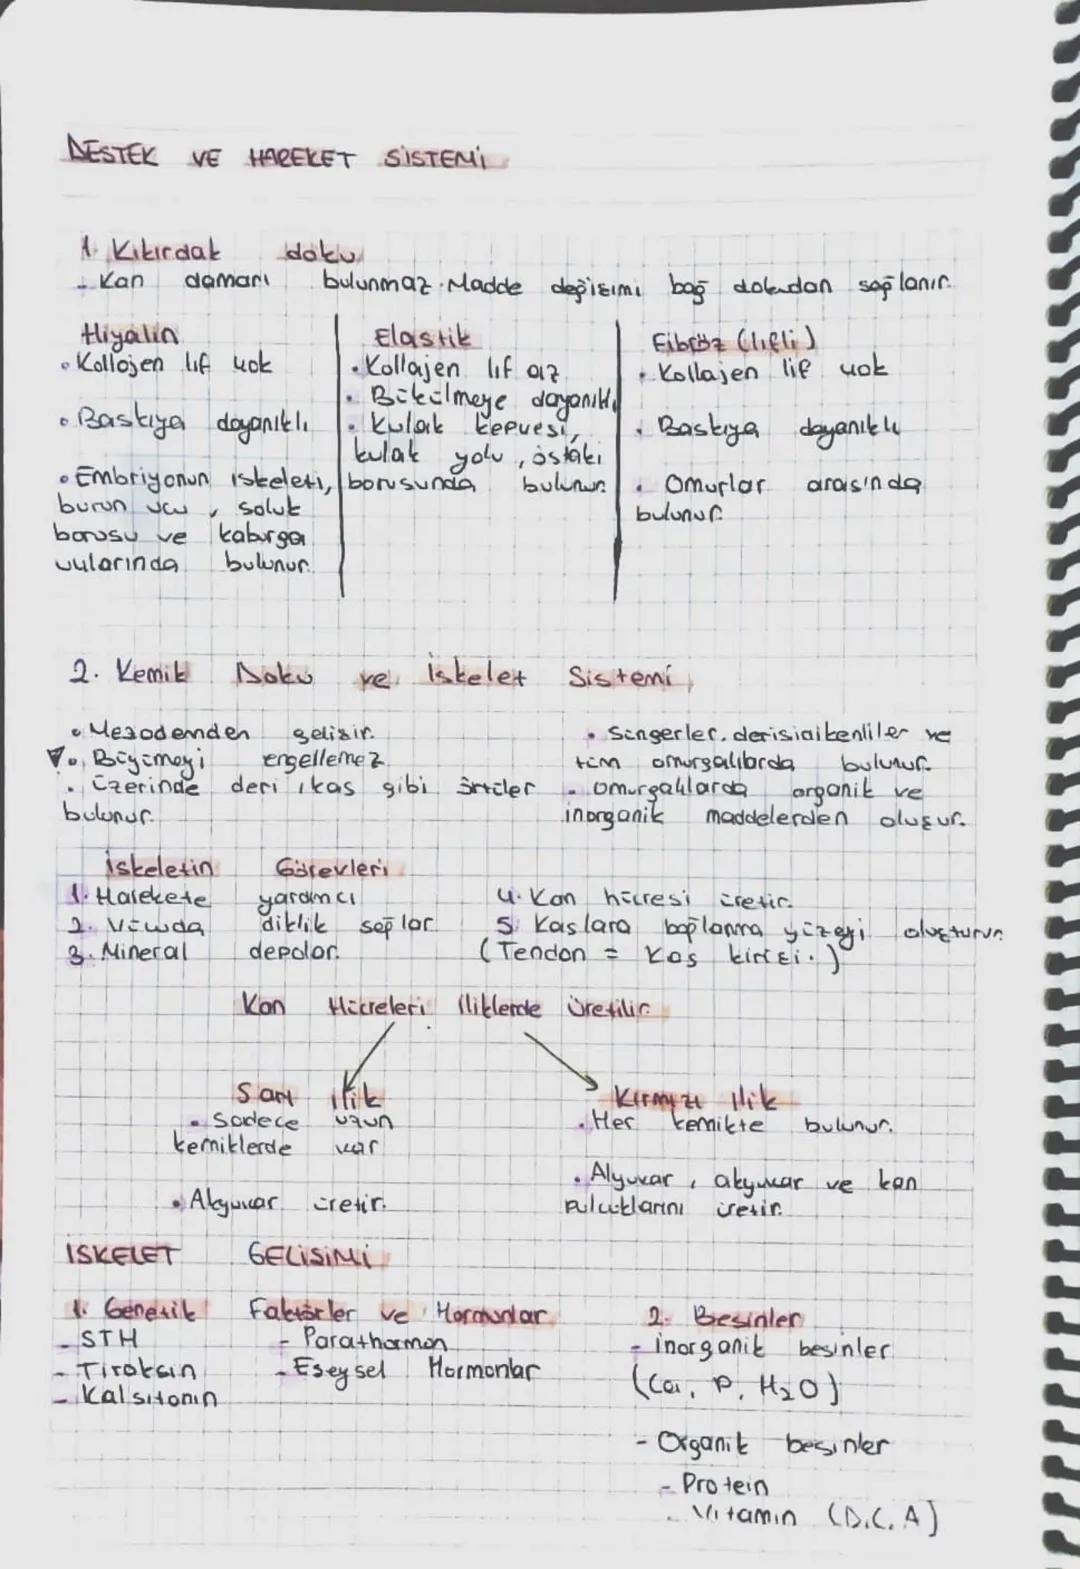 DESTEK VE HAREKET SİSTEMİ
1. Kıkırdak doku
- Kan damarı bulunmaz. Madde değişimi bağ dokudan sağlanır.
Hiyalin
• Kollojen lif yok
• Baskıya dayanıklı
• Embriyonun iskeleti,
burun ucu, soluk
borusu ve kaburga
uularında bulunur.
Elastik
• Kollajen lif az
• Bükülmeye dayanıklı
• Kulak kepçesi,
kulak yolu, östaki
borusunda bulunur.
Fibröz (lifli)
• Kollajen lif çok
• Baskıya dayanıklı
• Omurlar arasında
bulunur.
2. Kemik Doku ve İskelet Sistemi
• Mezodemden gelişir.
• Büyümeyi engellemez
• Üzerinde deri, kas gibi örtüler
bulunur.
• Süngerler, derisidikenliler ve
tüm omurgalılarda bulunur.
• Omurgalılarda organik ve
inorganik maddelerden oluşur.
İskeletin Görevleri
1. Harekete yardımcı
2. Vücuda diklik sağlar
3. Mineral depolar.
4. Kan hücresi üretir.
5. Kaslara bağlanma yüzeyi oluşturur
(Tendon = Kas kirişi.)
Kan Hücreleri İliklerde Üretilir.
Sarı ilik
• Sadece uzun
kemiklerde var
• Akyuvar üretir.
Kırmızı İlik
• Her kemikte bulunur.
• Alyuvar, akyuvar ve kan
pulcuklarını üretir.
İSKELET GELİSİMİ
1. Genetik Faktörler ve Hormonlar
- STH
- Tiroksin
- Kalsitonin
- Parathormon
- Eşeysel Hormonlar
2. Besinler
- inorganik besinler
(Ca, P, H₂O)
- Organik besinler
- Protein
- Vitamin (D, C, A)